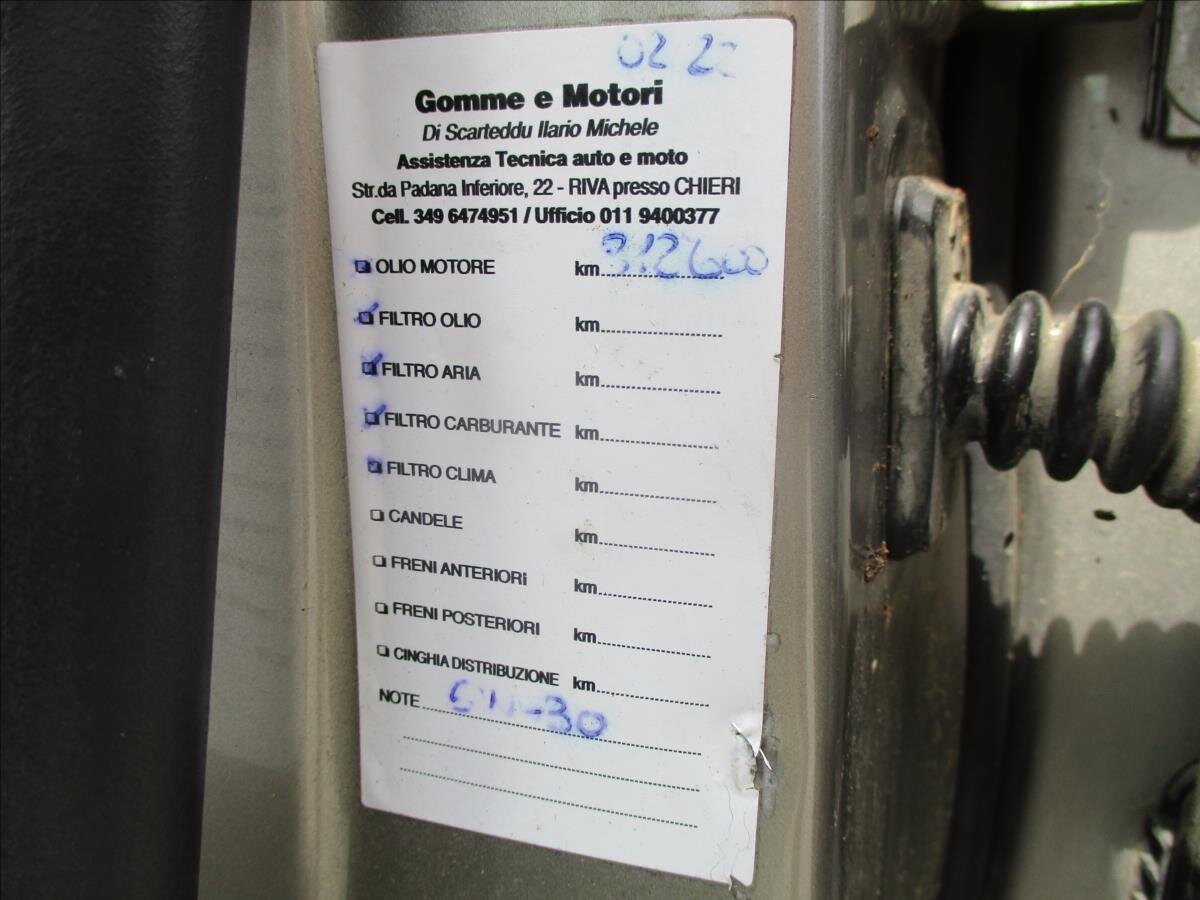 02 2
Gomme e Motori
Di Scarteddu Ilario Michele
Assistenza Tecnica auto e moto
Str.da Padana Inferiore, 22 - RIVA presso CHIERI
Cell. 349 6474951 / Ufficio 011 9400377
OLIO MOTORE km 312600
FILTRO OLIO km
FILTRO ARIA km
FILTRO CARBURANTE km
FILTRO CLIMA km
CANDELE km
FRENI ANTERIORI km
FRENI POSTERIORI km
CINGHIA DISTRIBUZIONE km
NOTE